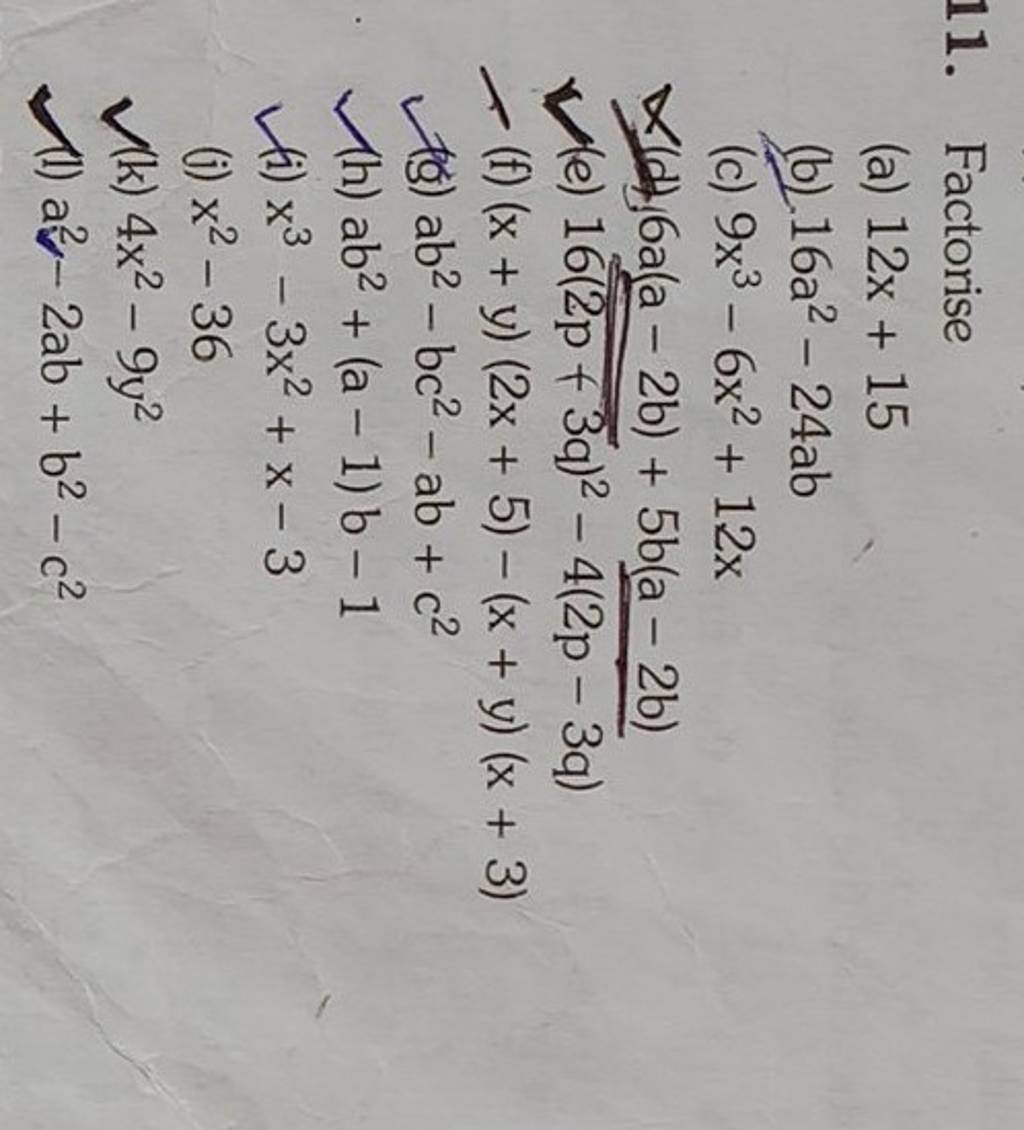 11. Factorise
(a) 12x + 15
(b) 16a² – 24ab
(c) 9x³ – 6x² + 12x
(d) 6a(a – 2b) + 5b(a – 2b)
(e) 16(2p + 3q)² – 4(2p – 3q)
(f) (x + y) (2x + 5) – (x + y) (x + 3)
(g) ab² – bc² – ab + c²
(h) ab² + (a – 1) b – 1
(i) x³ – 3x² + x – 3
(j) x² – 36
(k) 4x² – 9y²
(l) a² – 2ab + b² – c²